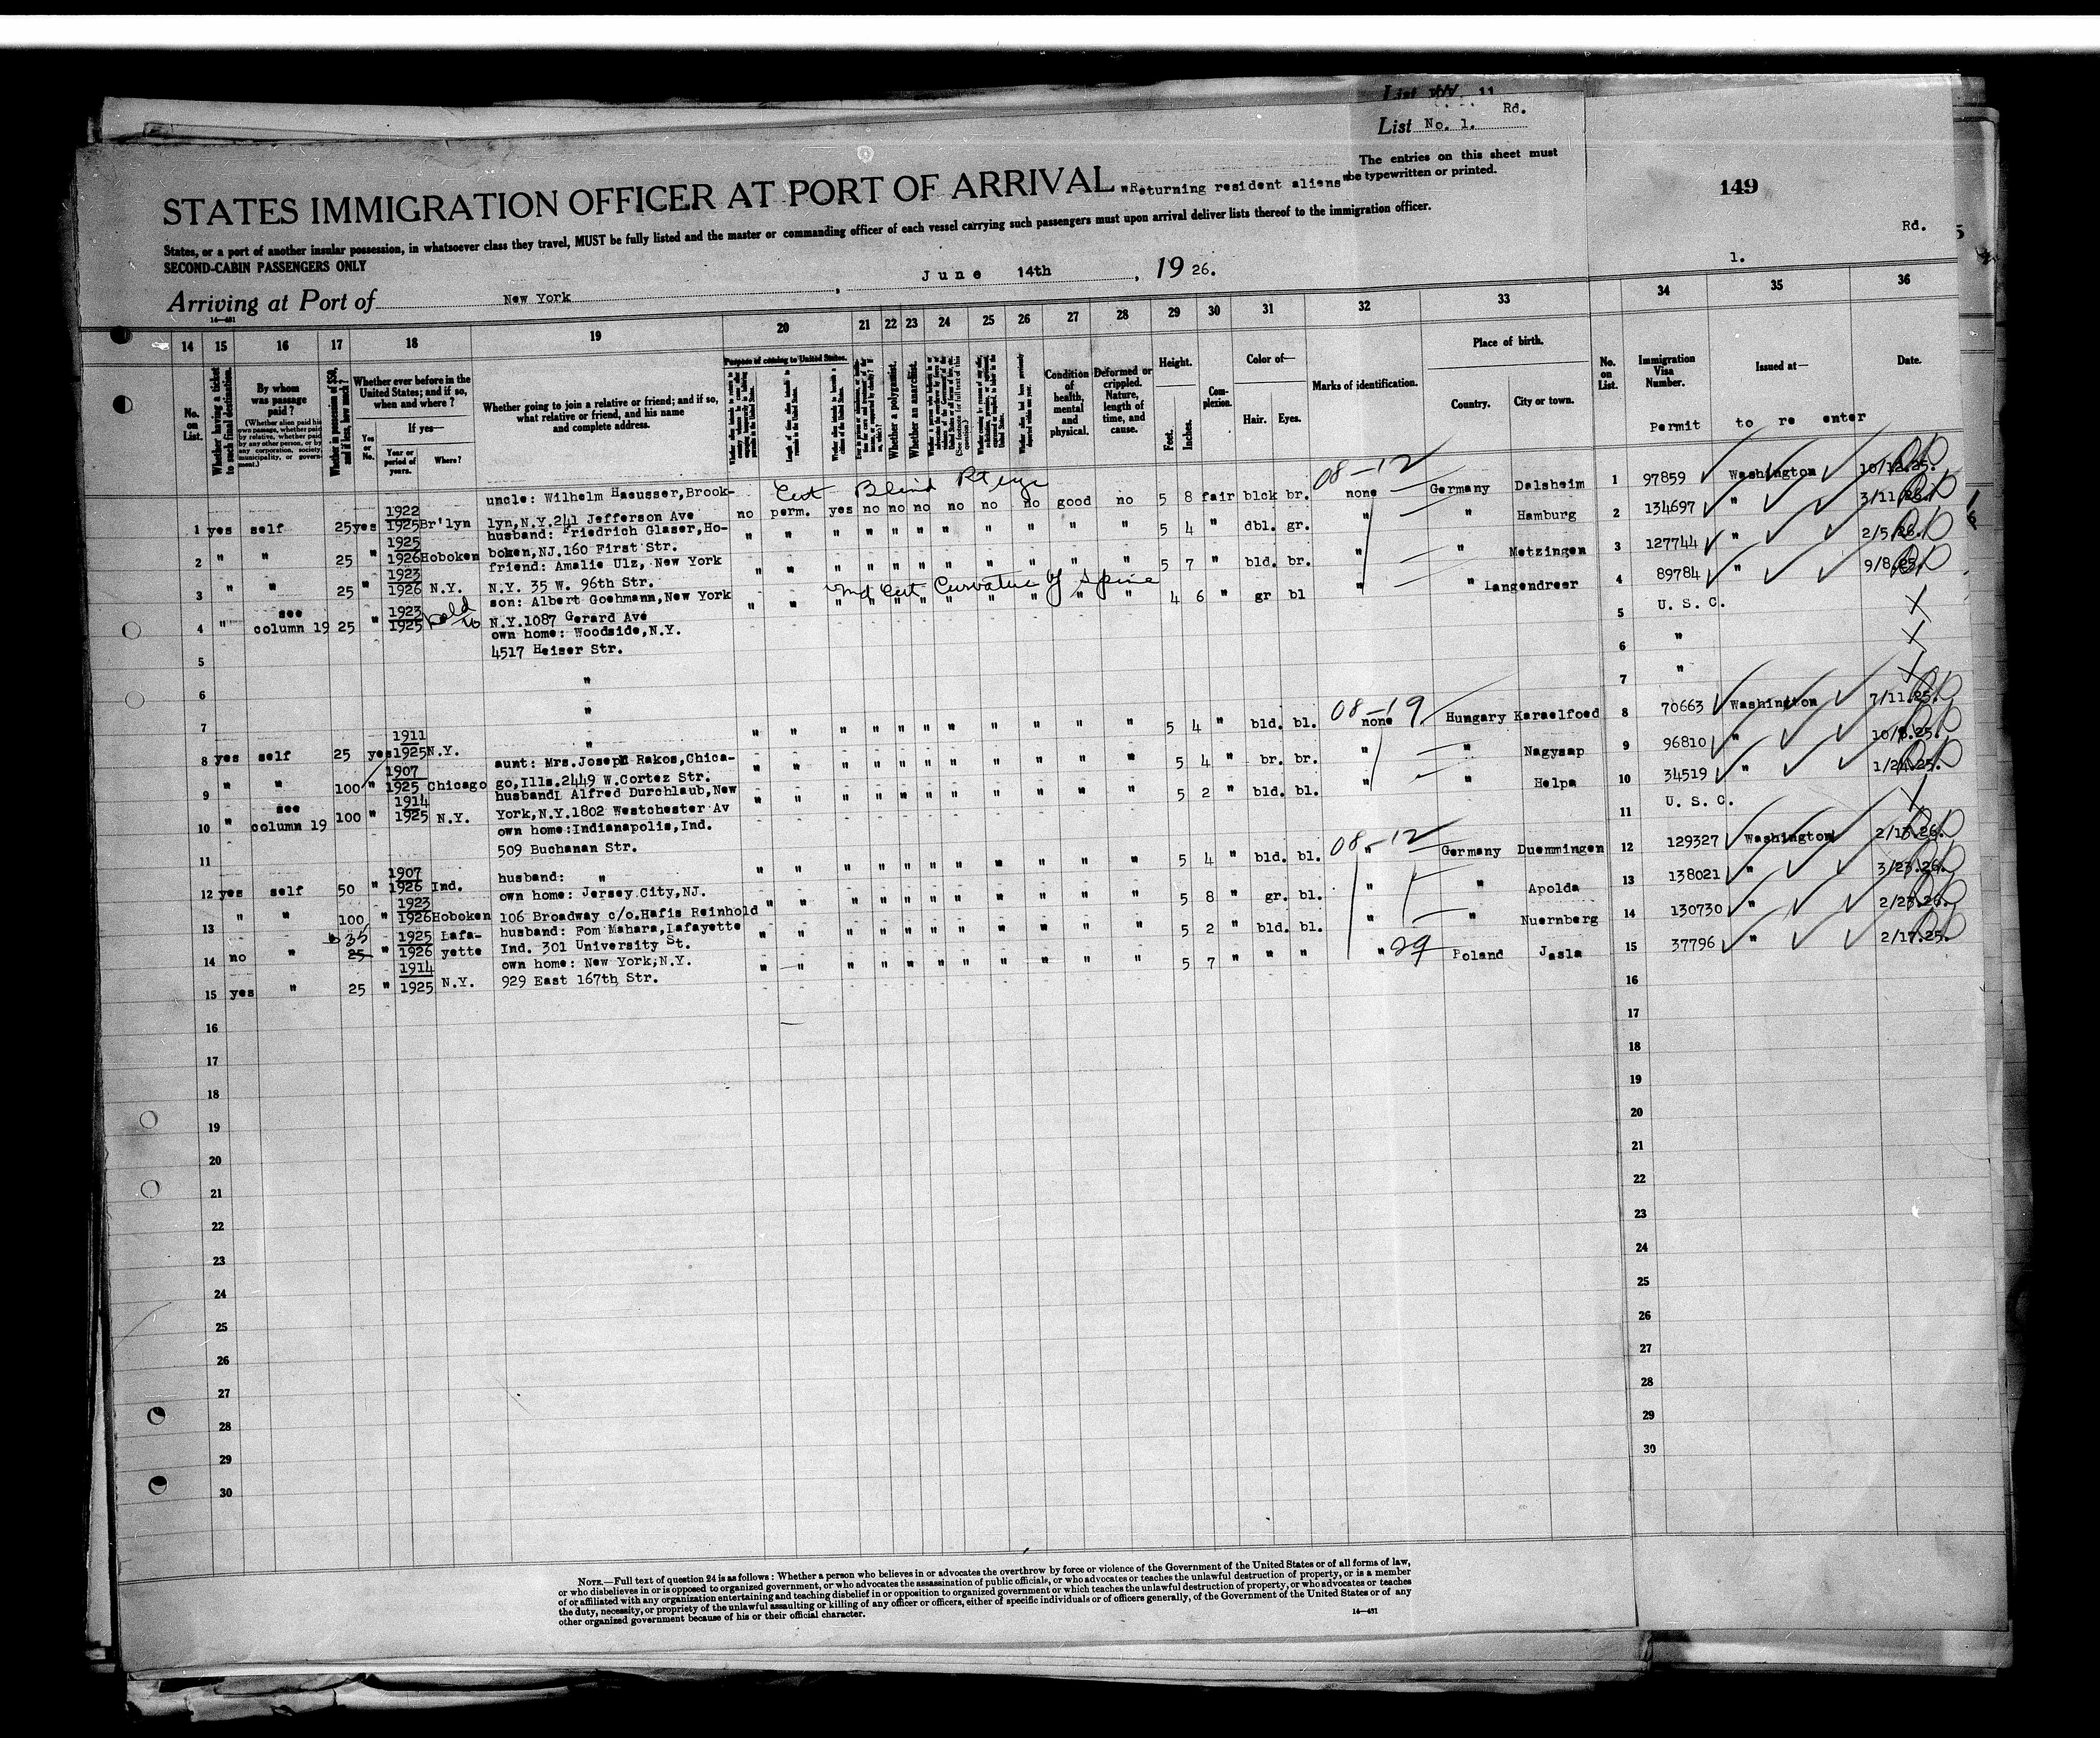 List 11
Rd.
List No. 1.
The entries on this sheet must
be typewritten or printed.
STATES IMMIGRATION OFFICER AT PORT OF ARRIVAL "Returning resident aliens"
149
States, or a port of another insular possession, in whatsoever class they travel, MUST be fully listed and the master or commanding officer of each vessel carrying such passengers must upon arrival deliver lists thereof to the immigration officer.
Rd.
SECOND-CABIN PASSENGERS ONLY
1.
Arriving at Port of New York, June 14th, 19 26.
14—431
14 15 16 17 18 19 20 21 22 23 24 25 26 27 28 29 30 31 32 33 34 35 36
No. on List.
Whether having a ticket to such final destination.
By whom was passage paid?
(Whether alien paid his own passage, whether paid by relative, whether paid by any other person, or by any corporation, society, municipality, or government.)
Whether in possession of $50, and if less, how much?
Whether ever before in the United States; and if so, when and where?
Yes or No.
If yes—
Year or period of years.
Where?
Whether going to join a relative or friend; and if so, what relative or friend, and his name and complete address.
Purpose of coming to United States.
Whether a polygamist.
Whether an anarchist.
Condition of health, mental and physical.
Deformed or crippled. Nature, length of time, and cause.
Height.
Feet.
Inches.
Complexion.
Color of—
Hair.
Eyes.
Marks of identification.
Place of birth.
Country.
City or town.
No. on List.
Immigration Visa Number.
Issued at—
Date.
Permit to re enter
Cert Blind Rt eye
08-12
uncle: Wilhelm Haeusser, Brook-
1 yes self 25 yes 1922 1925 Br'lyn lyn, N.Y. 241 Jefferson Ave no perm. yes no no no no no no good no 5 8 fair blck br. none Germany Dalsheim 1 97859 Washington 10/12.25.
husband: Friedrich Glaser, Ho-
2 " " 25 " 1925 1926 Hoboken boken, NJ. 160 First Str. " " " " " " " " " " " 5 4 " dbl. gr. " " Hamburg 2 134697 " 3/11.26.
friend: Amalie Ulz, New York
3 " " 25 " 1923 1926 N.Y. N.Y. 35 W. 96th Str. " " 5 7 " bld. br. " " Metzingen 3 127744 " 2/5.26.
Med Cert Curvature of Spine
son: Albert Goehmann, New York
4 " see column 19 25 " 1923 1925 N.Y. 1087 Gerard Ave " " " " " " " " " " " 4 6 " gr bl " " Langendreer 4 89784 " 9/8.25.
own home: Woodside, N.Y.
5 4517 Heiser Str. 5 U. S. C.
6 " 6 "
7 " 7 "
08-19
8 yes self 25 yes 1911 1925 N.Y. " " " " " " " " " " " " 5 4 " bld. bl. none Hungary Karaelfoed 8 70663 Washington 7/11.25.
aunt: Mrs. Joseph Rakos, Chica-
9 " " 100 " 1907 1925 Chicago go, Ills. 2449 W. Cortez Str. " " " " " " " " " " " 5 4 " br. br. " " Nagysap 9 96810 " 10/8.25.
husband: Alfred Durchlaub, New
10 " see column 19 100 " 1914 1925 N.Y. York, N.Y. 1802 Westchester Av " " " " " " " " " " " 5 2 " bld. bl. " " Helpa 10 34519 " 1/24.25.
own home: Indianapolis, Ind.
11 509 Buchanan Str. 11 U. S. C.
08-12
12 yes self 50 " 1907 1926 Ind. husband: " " " " " " " " " " " " 5 4 " bld. bl. " Germany Duemmingen 12 129327 Washington 2/13.26.
own home: Jersey City, NJ.
13 " " 100 " 1923 1926 Hoboken 106 Broadway c/o. Hafis Reinhold " " " " " " " " " " " 5 8 " gr. bl. " " Apolda 13 138021 " 3/23.26.
35
husband: Fom Mahara, Lafayette
14 no " 25 " 1925 1926 Lafa- yette Ind. 301 University St. " " " " " " " " " " " 5 2 " bld. bl. " " Nuernberg 14 130730 " 2/23.26.
own home: New York, N.Y.
15 yes " 25 " 1914 1925 N.Y. 929 East 167th Str. " " " " " " " " " " " 5 7 " " " " 29 Poland Jasla 15 37796 " 2/17.25.
16 16
17 17
18 18
19 19
20 20
21 21
22 22
23 23
24 24
25 25
26 26
27 27
28 28
29 29
30 30
NOTE.—Full text of question 24 is as follows: Whether a person who believes in or advocates the overthrow by force or violence of the Government of the United States or of all forms of law,
or who disbelieves in or is opposed to organized government, or who advocates the assassination of public officials, or who advocates or teaches the unlawful destruction of property, or is a member
of or affiliated with any organization entertaining and teaching disbelief in or opposition to organized government or which teaches the unlawful destruction of property, or who advocates or teaches
the duty, necessity, or propriety of the unlawful assaulting or killing of any officer or officers, either of specific individuals or of officers generally, of the Government of the United States or of any
other organized government because of his or their official character.
14—431